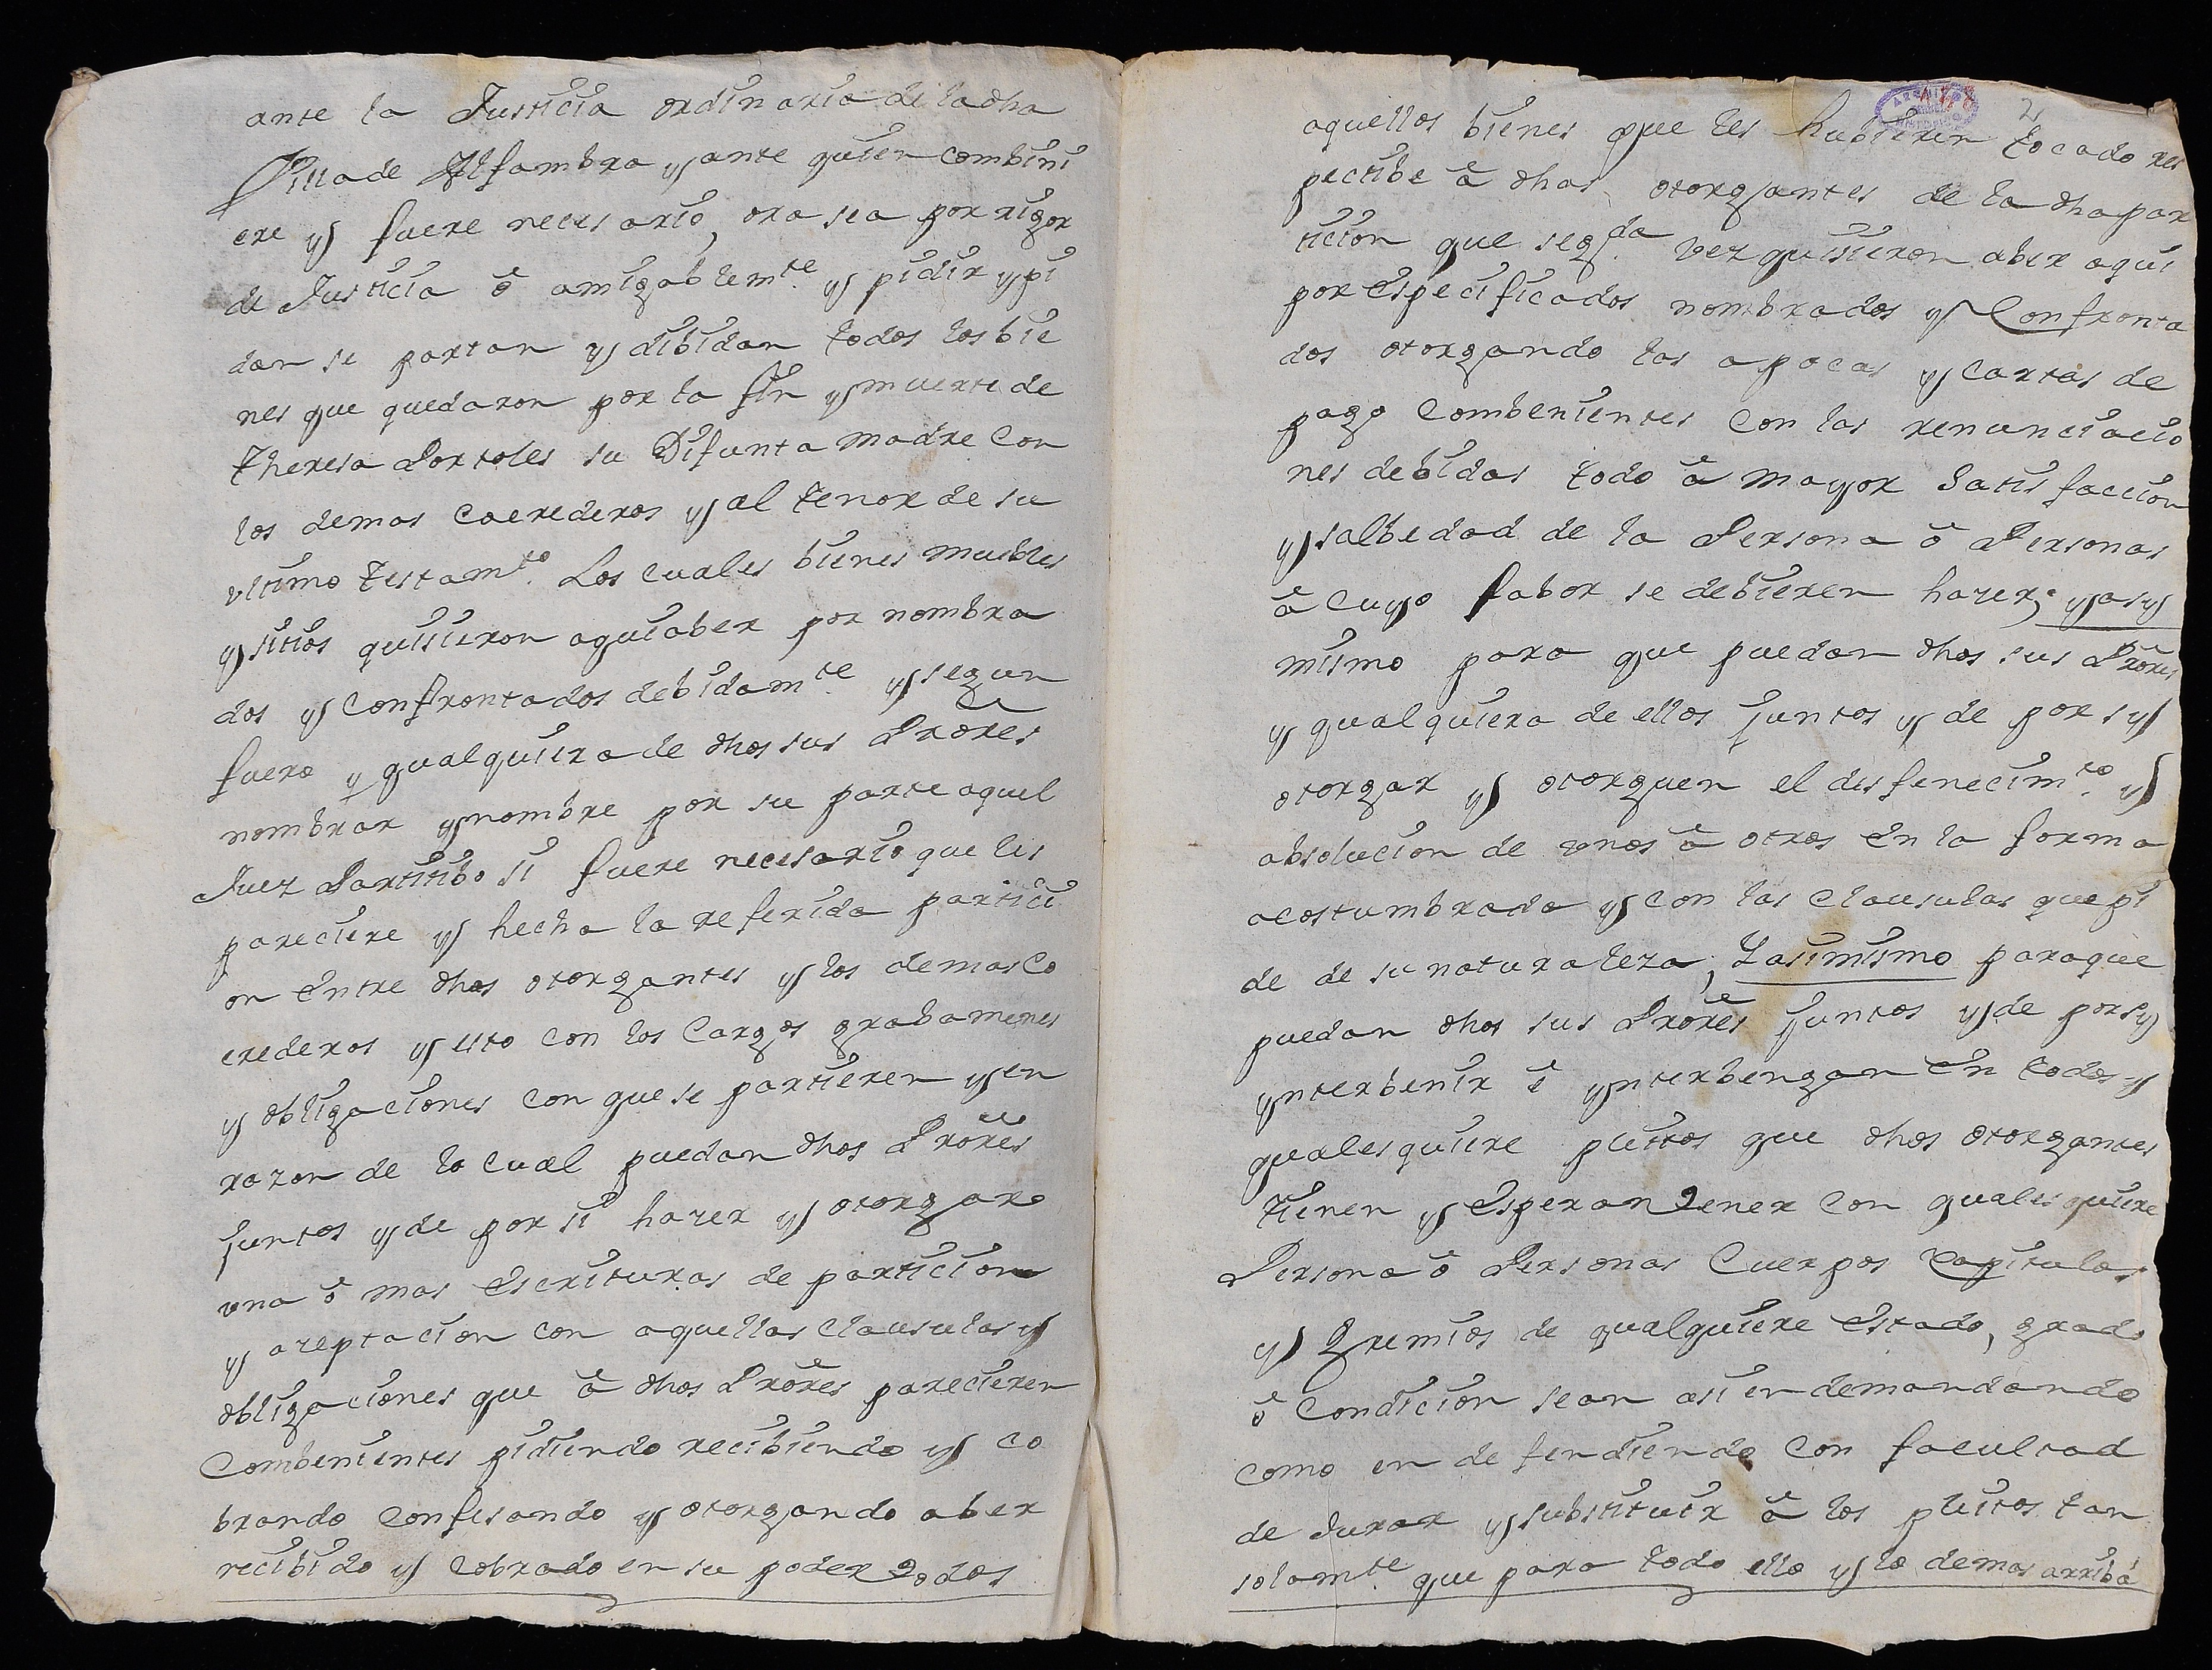 ante la Justicia ordinaria de la dha
Villa de Alfambra y ante quien combini
ere y fuere necesario, ora sea por rigor
de Justicia ô amigablemte. y pidir y pi
dan se partan y dibidan todos los bie
nes que quedaron por la fin y muerte de
Theresa Portoles su Difunta madre con
los demas Coerederos y al tenor de su
vltimo testamto. Los cuales bienes muebles
y sitios quisieron aqui aber por nombra
dos y Confrontados debidamte. y segun
fuero y qualquiera de dhos sus Prores
nombrar y nombre por su parte aquel
Juez Partitibo si fuere necesario que les
pareciere y hecha la referida partici
on entre dhos otorgantes y los demas Co
erederos y esto con los Cargos grabamenes
y obligaciones con que se partieren y en
razon de lo cual puedan dhos Prores
juntos y de por si hazer y otorgar
vna ô mas escrituras de particion
y azeptacion con aquellas clausulas y
obligaciones que â dhos Prores parecieren
Combenientes pidiendo recibiendo y co
brando confesando y otorgando aber
recibido y cobrado en su poder todos
2
aquellos bienes que les hubieren tocado res
pectibe â dhos otorgantes de la dha par
ticion que segda. vez quisieron aber aqui
por especificados nombrados y Confronta
dos otorgando las apocas y cartas de
pago combenientes con las renunciacio
nes debidas todo â mayor Satisfaccion
y salbedad de la Persona ô Personas
â cuyo fabor se debieren hazer; y asy
mismo para que puedan dhos sus Prores
y qualquiera de ellos juntos y de por sy
otorgar y otorguen el disfenecimto. y
absolucion de vnos â otros en la forma
acostumbrada y con las clausulas que pi
de de su naturaleza, Yasimismo para que
puedan dhos sus Prores juntos y de por sy
ynterbenir ê ynterbengan en todos y
qualesquiere pleitos que dhos otorgantes
tienen y esperan tener con qualesquiere
Persona ô Personas Cuerpos Capitulos
y Gremios de qualquiere estado, grado
ô Condicion sean asi en demandando
como en defendiendo con facultad
de Jurar y substituir â los pleitos tan
solamte. que para todo ello y lo demas arriba